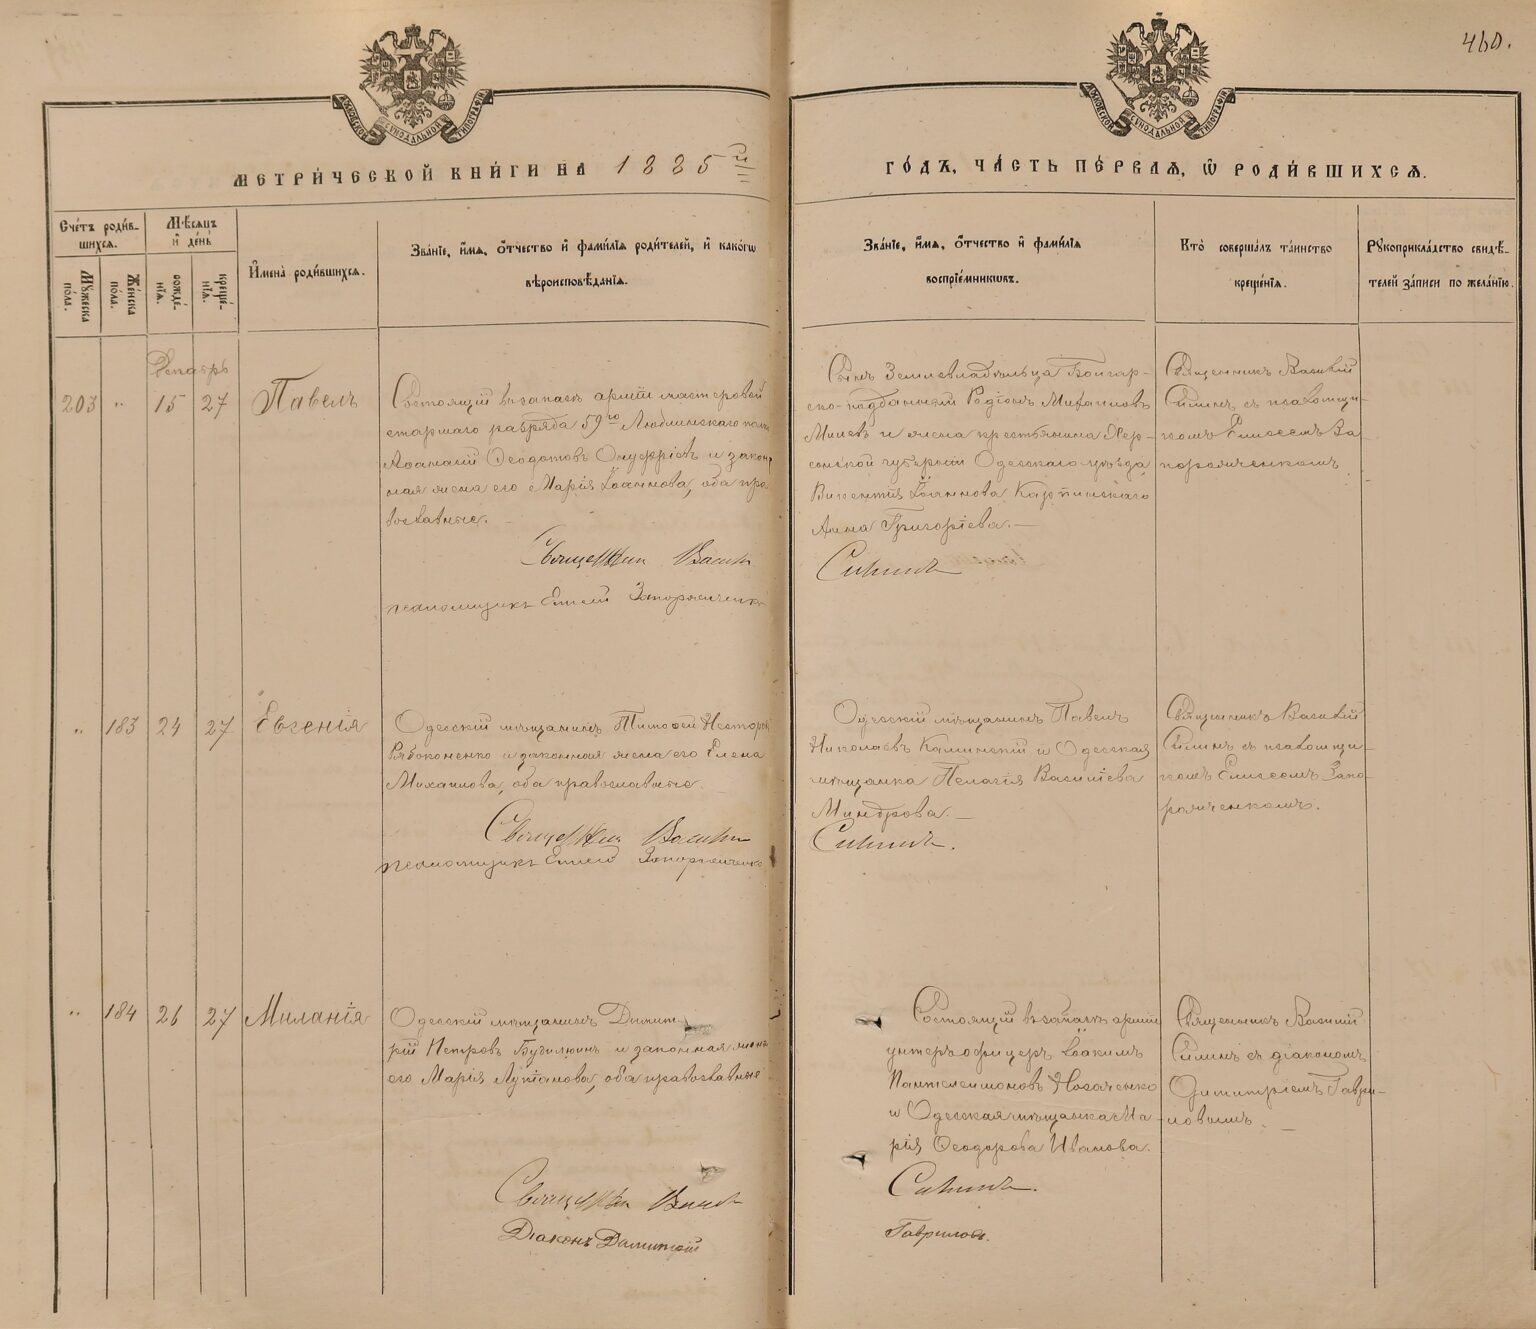 460.
МОСКОВСКОЙ СѴНОДАЛЬНОЙ ТИПОГРАФІИ
МЕТРИ́ЧЕСКОЙ КНИ́ГИ НА 1885й
ГО́ДЪ, ЧА́СТЬ ПЕ́РВАЯ, Ѡ РОДИ́ВШИХСЯ.
Сче́тъ роди́вшихся.
Му́жеска по́ла.
Же́нска по́ла.
Мѣ́сяцъ и҆ де́нь
рожде́нїя.
креще́нїя.
И҆мена̀ роди́вшихся.
Зва́нїе, и҆́мя, ѻ҆́тчество и҆ фами́лїя роди́телей, и҆ како́гѡ
вѣроисповѣ́данїя.
Зва́нїе, и҆́мя, ѻ҆́тчество и҆ фами́лїя
воспрїе́мникѡвъ.
Кто̀ соверша́лъ та́инство
креще́нїя.
Рꙋкоприкла́дство свидѣ́-
телей за́писи по жела́нїю.
Сентябрь
203 " 15 27 Павелъ
Состоящій въ запасѣ арміи мастеровой
старшаго разряда 59го Люблинскаго полка
Аѳанасій Ѳеодотовъ Онуфріевъ и закон-
ная жена его Марія Іоаннова, оба пра-
вославные.
Священник Василій
псаломщикъ Елисей Запорожченко
Сынъ Землевладѣльца Болгар-
ско-подданный Родіонъ Михаиловъ
Миневъ и жена крестьянина Хер-
сонской губерніи Одесскаго уѣзда
Викентія Іоаннова Карпинскаго
Анна Григоріева.
Силинъ
Священникъ Василій
Силинъ съ псаломщи-
комъ Елисеемъ За-
порожченкомъ
" 183 24 27 Евгенія
Одесскій мѣщанинъ Тимофей Несторовъ
Рябоконенко и законная жена его Елена
Михаилова, оба православные.
Священник Василій
псаломщикъ Елисей Запорожченко
Одесскій мѣщанинъ Павелъ
Николаевъ Каминскій и Одесская
мѣщанка Пелагія Василіева
Миндрова.
Силинъ.
Священникъ Василій
Силинъ съ псаломщи-
комъ Елисеемъ Запо-
рожченкомъ.
" 184 26 27 Миланія
Одесскій мѣщанинъ Димит-
рій Петровъ и законная жена
его Марія Лукіанова, оба православные
Священник Василій
Діаконъ Димитрій
Состоящій въ запасѣ арміи
унтеръ-офицеръ Іоакимъ
Пантелеимоновъ Носаченко
и Одесская мѣщанка Ма-
рія Ѳеодорова Иванова.
Силинъ.
Гавриловъ.
Священникъ Василій
Силинъ съ діакономъ
Димитріемъ Гаври-
ловымъ.